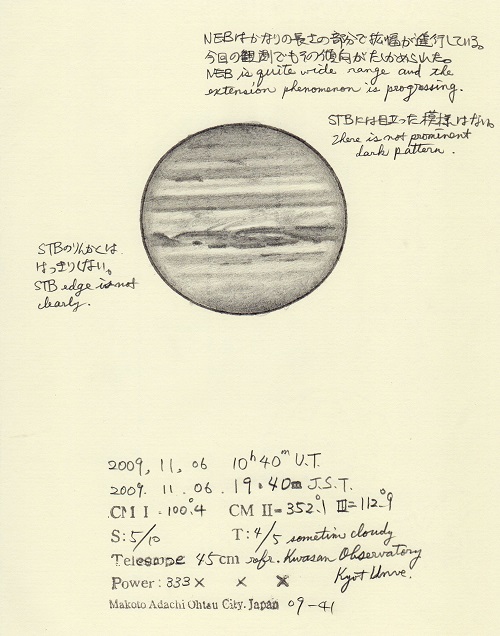 NEBはかなりの長さの部分で拡幅が進行している。
今回の観測でもその傾向がたしかめられた。
NEB is quite wide range and the
extension phenomenon is progressing.
STBには目立った模様はない。
There is not prominent
dark pattern.
STBのりんかくは
はっきりしない。
STB edge is not
clearly.
2009, 11, 06 10h 40m U.T.
2009. 11. 06. 19.40m J.S.T.
CM I = 100°.4 CM II = 352°.1 III = 112°.9
S: 5/10 T: 4/5 sometim cloudy
Telescope 45cm refr. Kwasan Observatory
Power: 333× × × Kyot Unive.
Makoto Adachi Ohtsu City. Japan 09-41